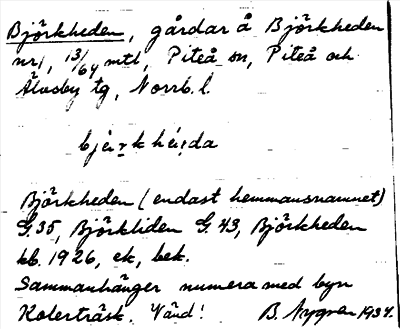 Björkheden, gårdar å Björkheden
nr 1, 13/64 mtl, Piteå sn, Piteå och
Älvsby tg, Norrb. l.
Björkheden (endast hemmansnamnet)
G. 35, Björkliden G. 43, Björkheden
kb. 1926, ek, bek.
Sammanhänger numera med byn
Kolerträsk. Vänd! B. Nygren 1937.